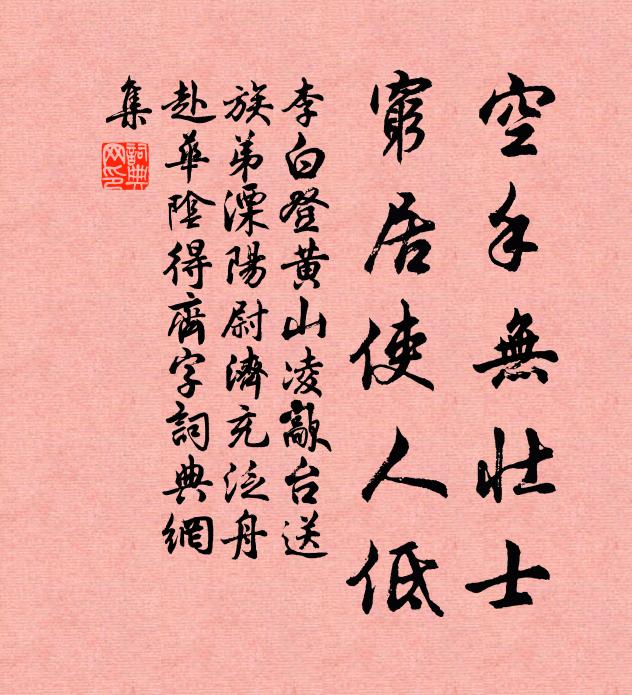 空手無壯士
窮居使人低
李白登黃山凌歊台送
族弟溧陽尉濟充泛舟
赴華陰得齊字詞典網
集
詞典網印